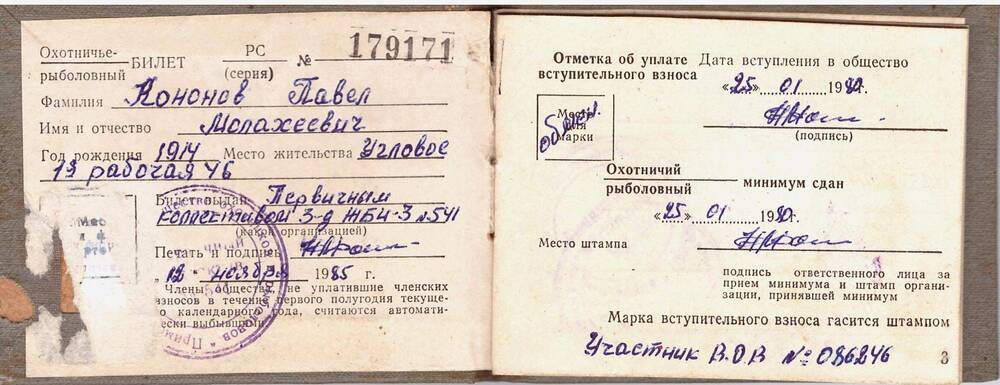 Охотничье-
рыболовный БИЛЕТ РС (серия) № 179171
Фамилия Кононов Павел
Имя и отчество Малахеевич
Год рождения 1914 Место жительства Угловое
1я рабочая 46
Билет выдан Первичным
коллективом з-д ЖБИ-3 № 541
(какой организацией)
Печать и подпись
„12" ноября 1985 г.
Члены общества, не уплатившие членских
взносов в течение первого полугодия текуще-
го календарного года, считаются автомати-
чески выбывшими.
Отметка об уплате вступительного взноса
Дата вступления в общество
«25» 01 1980.
Место
для
марки
обмен
(подпись)
Охотничий
рыболовный минимум сдан
«25» 01 1980.
Место штампа
подпись ответственного лица за
прием минимума и штамп органи-
зации, принявшей минимум
Марка вступительного взноса гасится штампом
Участник В.О.В № 086246
3